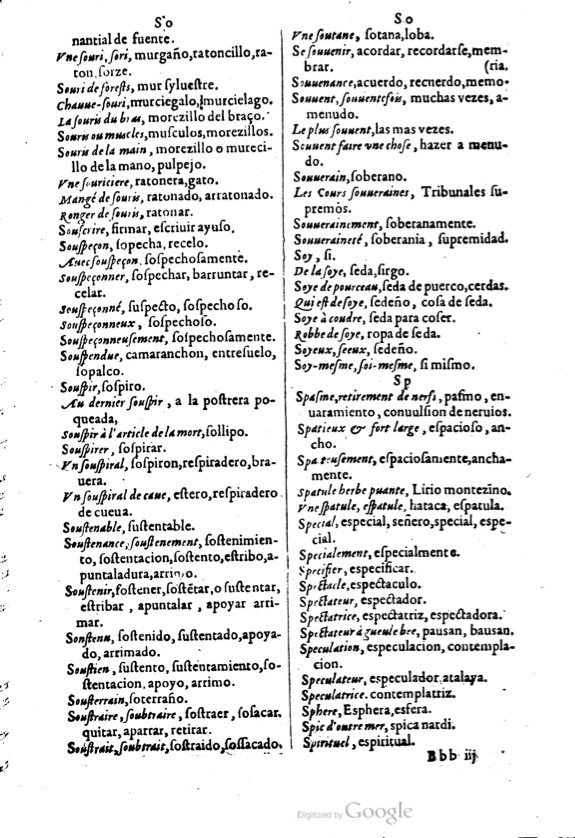 So
nantial de fuente.
Vne souri, sori, murgaño, ratoncillo, ra-
ton, sorze.
Souri de forests, mur syluestre.
Chauue-souri, murciegalo, murcielago.
La souris du bras, morezillo del braço.
Souris ou muscles, musculos, morezillos.
Souris de la main, morezillo o mureci-
llo de la mano, pulpejo.
Vne souriciere, ratonera, gato.
Mangé de souris, ratonado, arratonado.
Ronger de souris, ratonar.
Souscrire, firmar, escriuir ayuso.
Souspeçon, sopecha, recelo.
Auec souspeçon, sospechosamente.
Souspeçonner, sospechar, barruntar, re-
celar.
Souspeçonné, suspecto, sospechoso.
Souspeçonneux, sospechoso.
Souspeçonneusement, sospechosamente.
Souspendue, camaranchon, entresuelo,
sopalco.
Souspir, sospiro.
Au dernier souspir, a la postrera po-
queada,
Souspir à l'article de la mort, sollipo.
Souspirer, sospirar.
Vn souspiral, sospiron, respiradero, bra-
uera.
Vn souspiral de caue, estero, respiradero
de cueua.
Soustenable, sustentable.
Soustenance, soustenement, sostenimien-
to, sostentacion, sostento, estribo, a-
puntaladura, arrimo.
Soustenir, sostener, sostētar, o sustentar,
estribar, apuntalar, apoyar arri-
mar.
Soustenu, sostenido, sustentado, apoya-
do, arrimado.
Soustien, sustento, sustentamiento, so-
stentacion, apoyo, arrimo.
Sousterrain, soterraño.
Soustraire, soubtraire, sostraer, sosacar,
quitar, apartar, retirar.
Soustrait, soubtrait, sostraido, sossacado.
So
Vne soutane, sotana, loba.
Se souuenir, acordar, recordarse, mem-
brar. (ria.
Souuenance, acuerdo, recuerdo, memo-
Souuent, souuentefois, muchas vezes, a-
menudo.
Le plus souuent, las mas vezes.
Souuent faire vne chose, hazer a menu-
do.
Souuerain, soberano.
Les Cours souueraines, Tribunales su-
premos.
Souuerainement, soberanamente.
Souueraineté, soberania, supremidad.
Soy, si.
De la soye, seda, sirgo.
Soye de pourceau, seda de puerco, cerdas.
Qui est de soye, sedeño, cosa de seda.
Soye à coudre, seda para coser.
Robbe de soye, ropa de seda.
Soyeux, seeux, sedeño.
Soy-mesme, soi-mesme, si mismo.
Sp
Spasme, retirement de nerfs, pasmo, en-
uaramiento, conuulsion de neruios.
Spatieux & fort large, espacioso, an-
cho.
Spatieusement, espaciosamente, ancha-
mente.
Spatule herbe puante, Lirio montezino.
Vne spatule, espatule, hataca, espatula.
Special, especial, señero, special, espe-
cial.
Specialement, especialmente.
Specifier, especificar.
Spectacle, espectaculo.
Spectateur, espectador.
Spectatrice, espectatriz, espectadora.
Spectateur à gueule bee, pausan, bausan.
Speculation, especulacion, contempla-
cion.
Speculateur, especulador, atalaya.
Speculatrice, contemplatriz.
Sphere, Esphera, esfera.
Spic d'outre mer, spica nardi.
Spirituel, espiritual.
Bbb iij
Digitized by Google